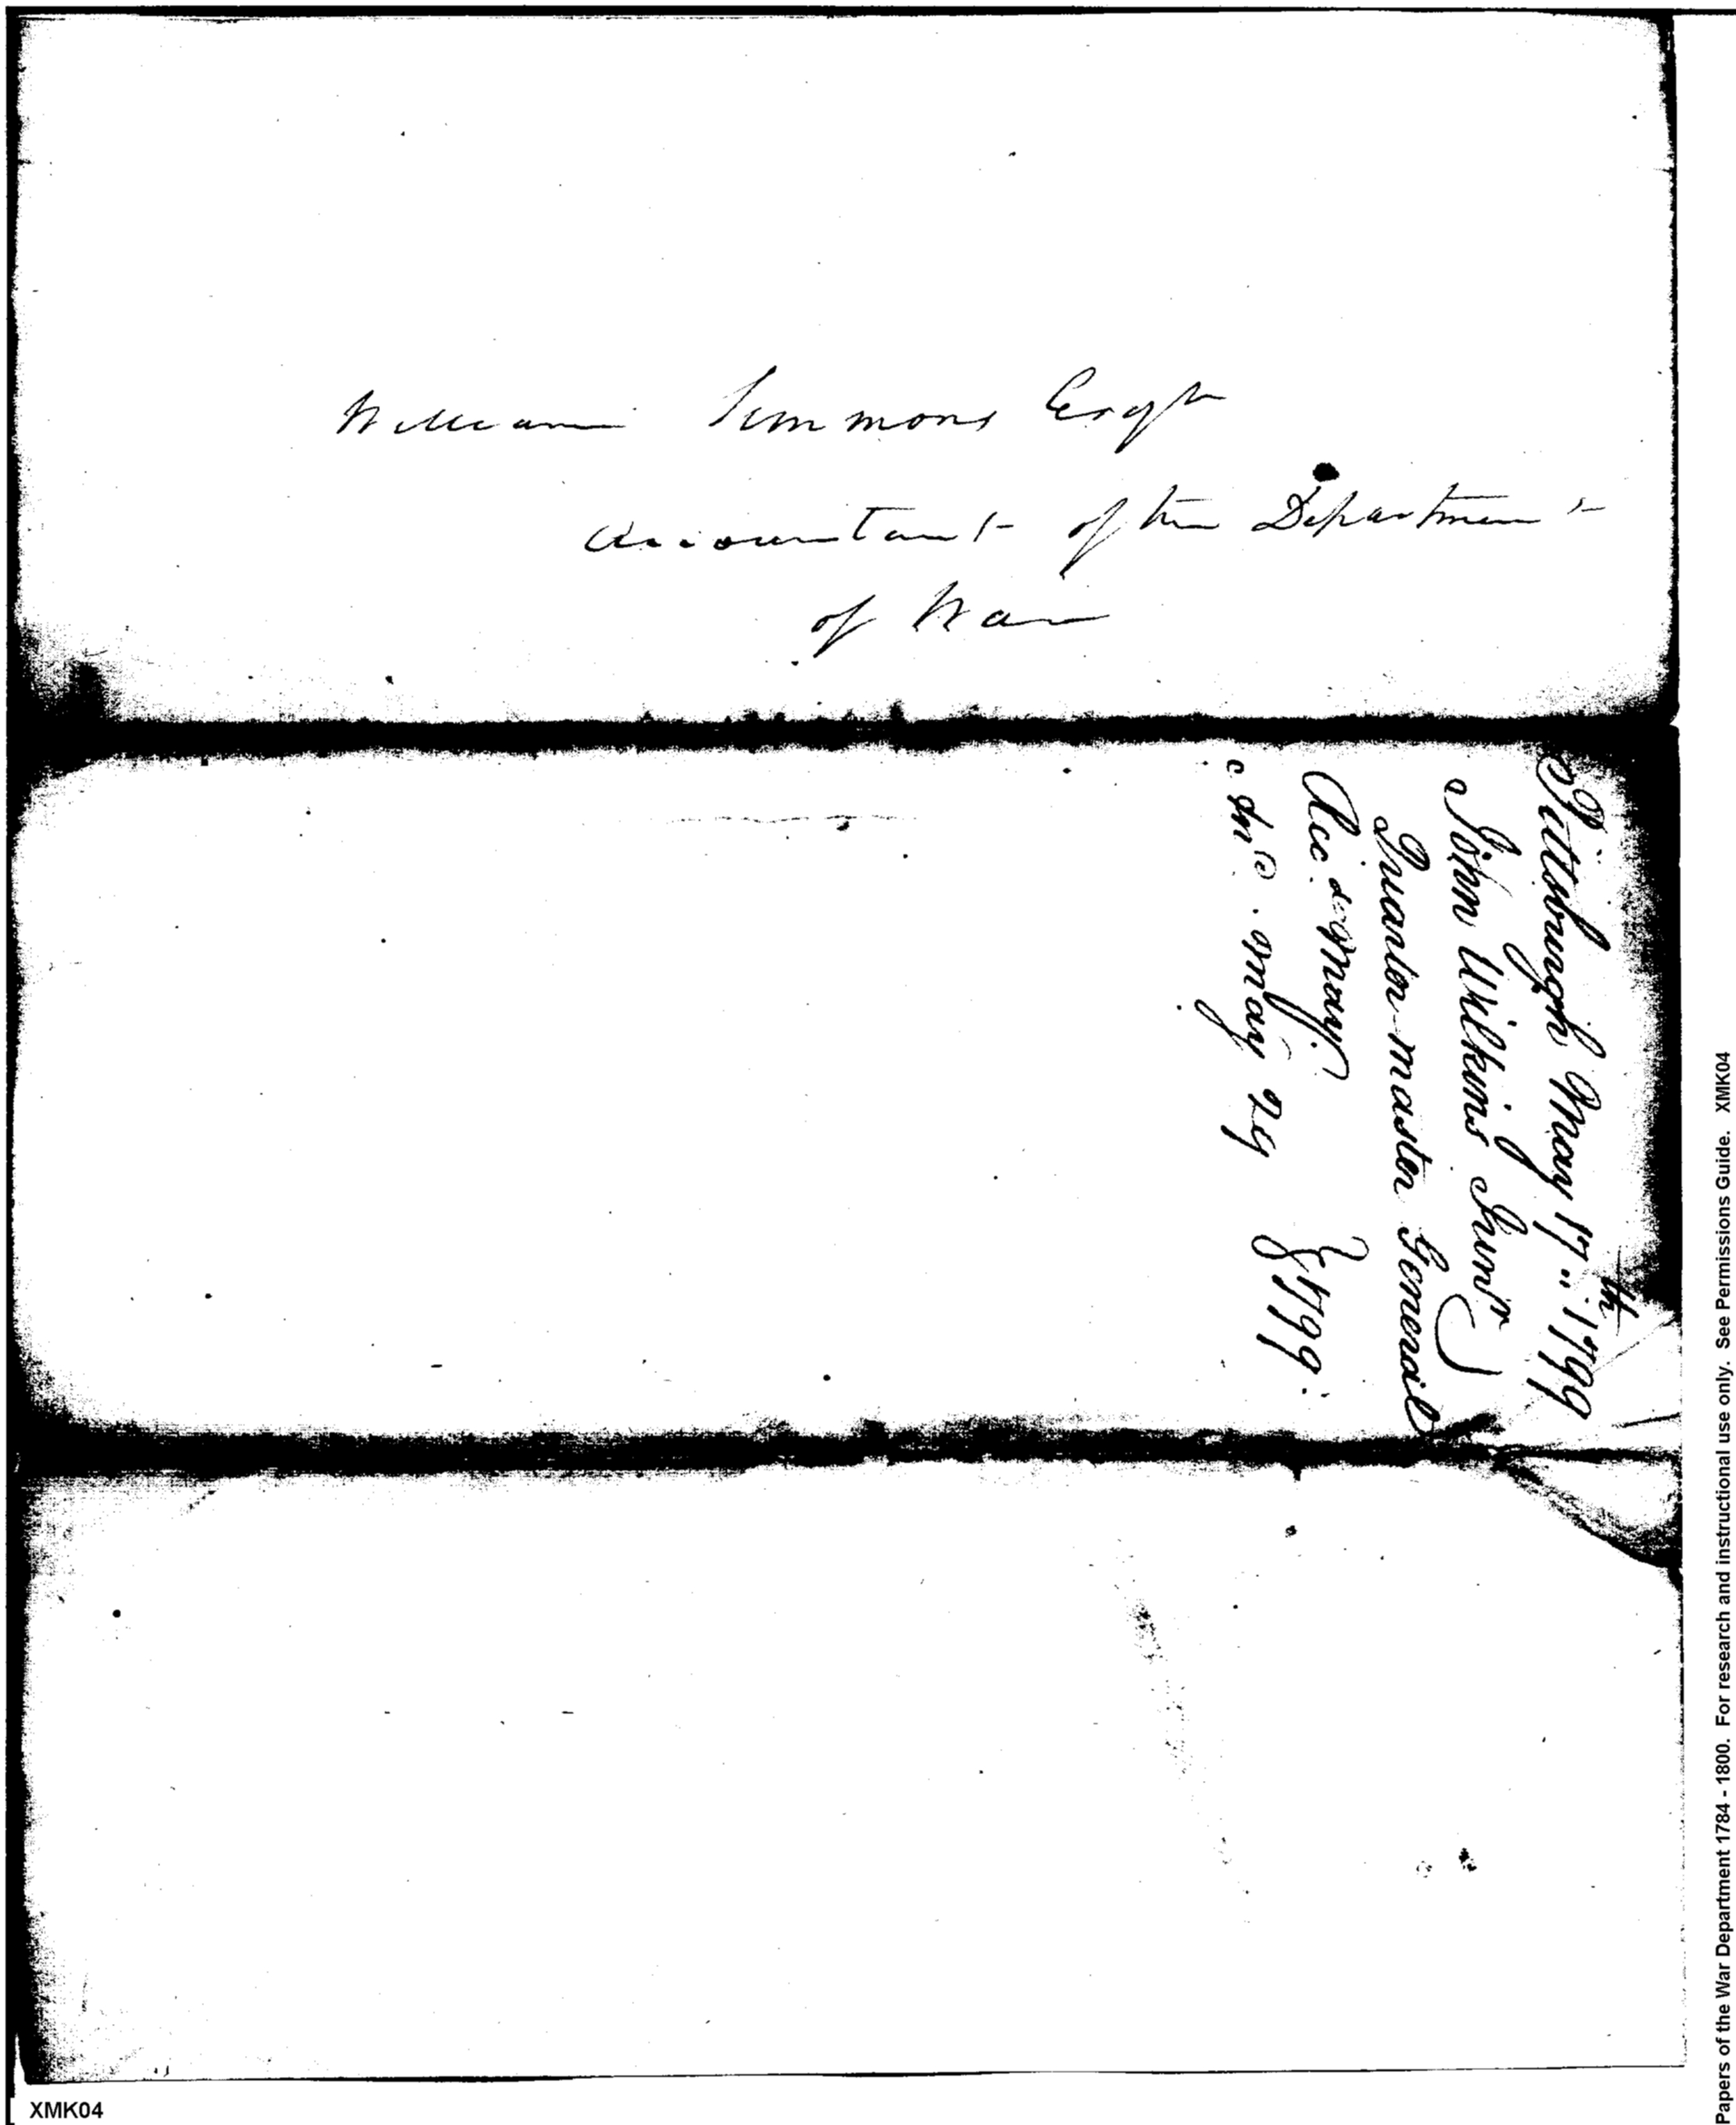 William Simmons Esqr
Accountant of the Department
of War
Pittsburgh May 17th 1799
John Wilkins Junr
Quarter-master General
Ansd. May 29 1799.
Papers of the War Department 1784 - 1800. For research and instructional use only. See Permissions Guide. XMK04
XMK04